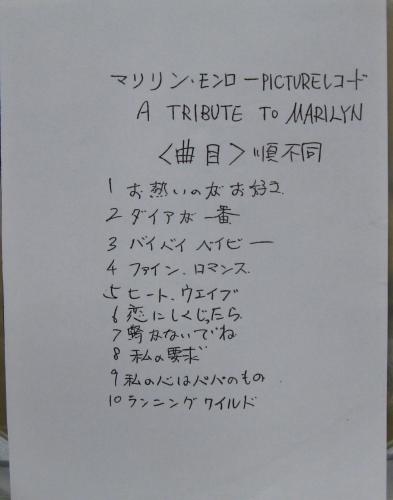 マリリン・モンローPICTUREレコード
A TRIBUTE TO MARILYN
<曲目>順不同
1 お熱いのがお好き
2 ダイアが一番
3 バイバイ ベイビー
4 ファイン、ロマンス
5 ヒート、ウエイブ
6 恋にしくじったら
7 帰らないでね
8 私の要求
9 私の心はパパのもの
10 ランニングワイルド